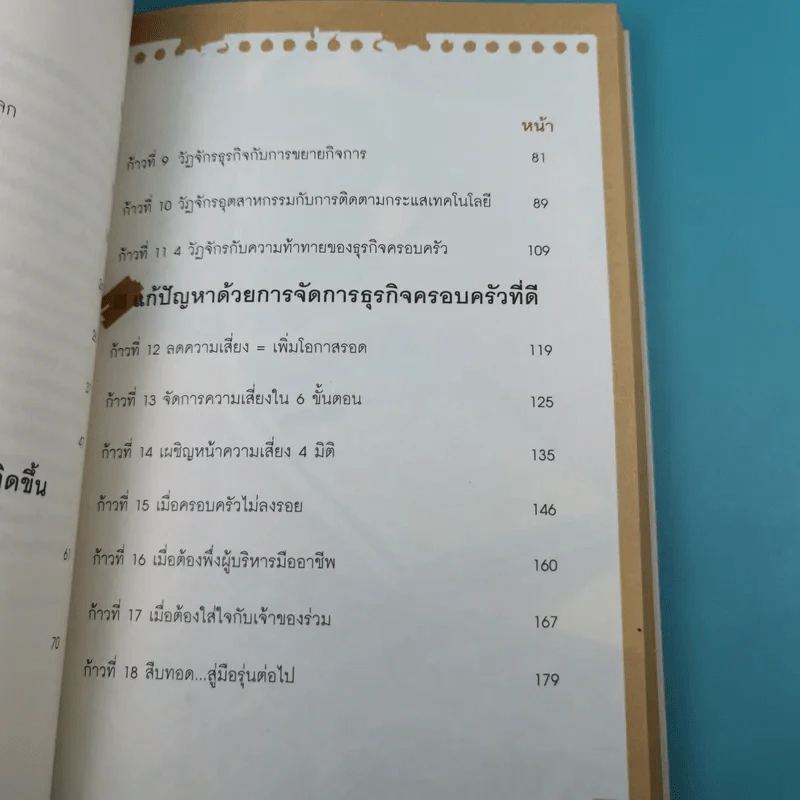 หน้า
ก้าวที่ 9 วัฏจักรธุรกิจกับการขยายกิจการ 81
ก้าวที่ 10 วัฏจักรอุตสาหกรรมกับการติดตามกระแสเทคโนโลยี 89
ก้าวที่ 11 4 วัฏจักรกับความท้าทายของธุรกิจครอบครัว 109
แก้ปัญหาด้วยการจัดการธุรกิจครอบครัวที่ดี
ก้าวที่ 12 ลดความเสี่ยง = เพิ่มโอกาสรอด 119
ก้าวที่ 13 จัดการความเสี่ยงใน 6 ขั้นตอน 125
ก้าวที่ 14 เผชิญหน้าความเสี่ยง 4 มิติ 135
ก้าวที่ 15 เมื่อครอบครัวไม่ลงรอย 146
ก้าวที่ 16 เมื่อต้องพึ่งผู้บริหารมืออาชีพ 160
ก้าวที่ 17 เมื่อต้องใส่ใจกับเจ้าของร่วม 167
ก้าวที่ 18 สืบทอด...สู่มือรุ่นต่อไป 179
61
70